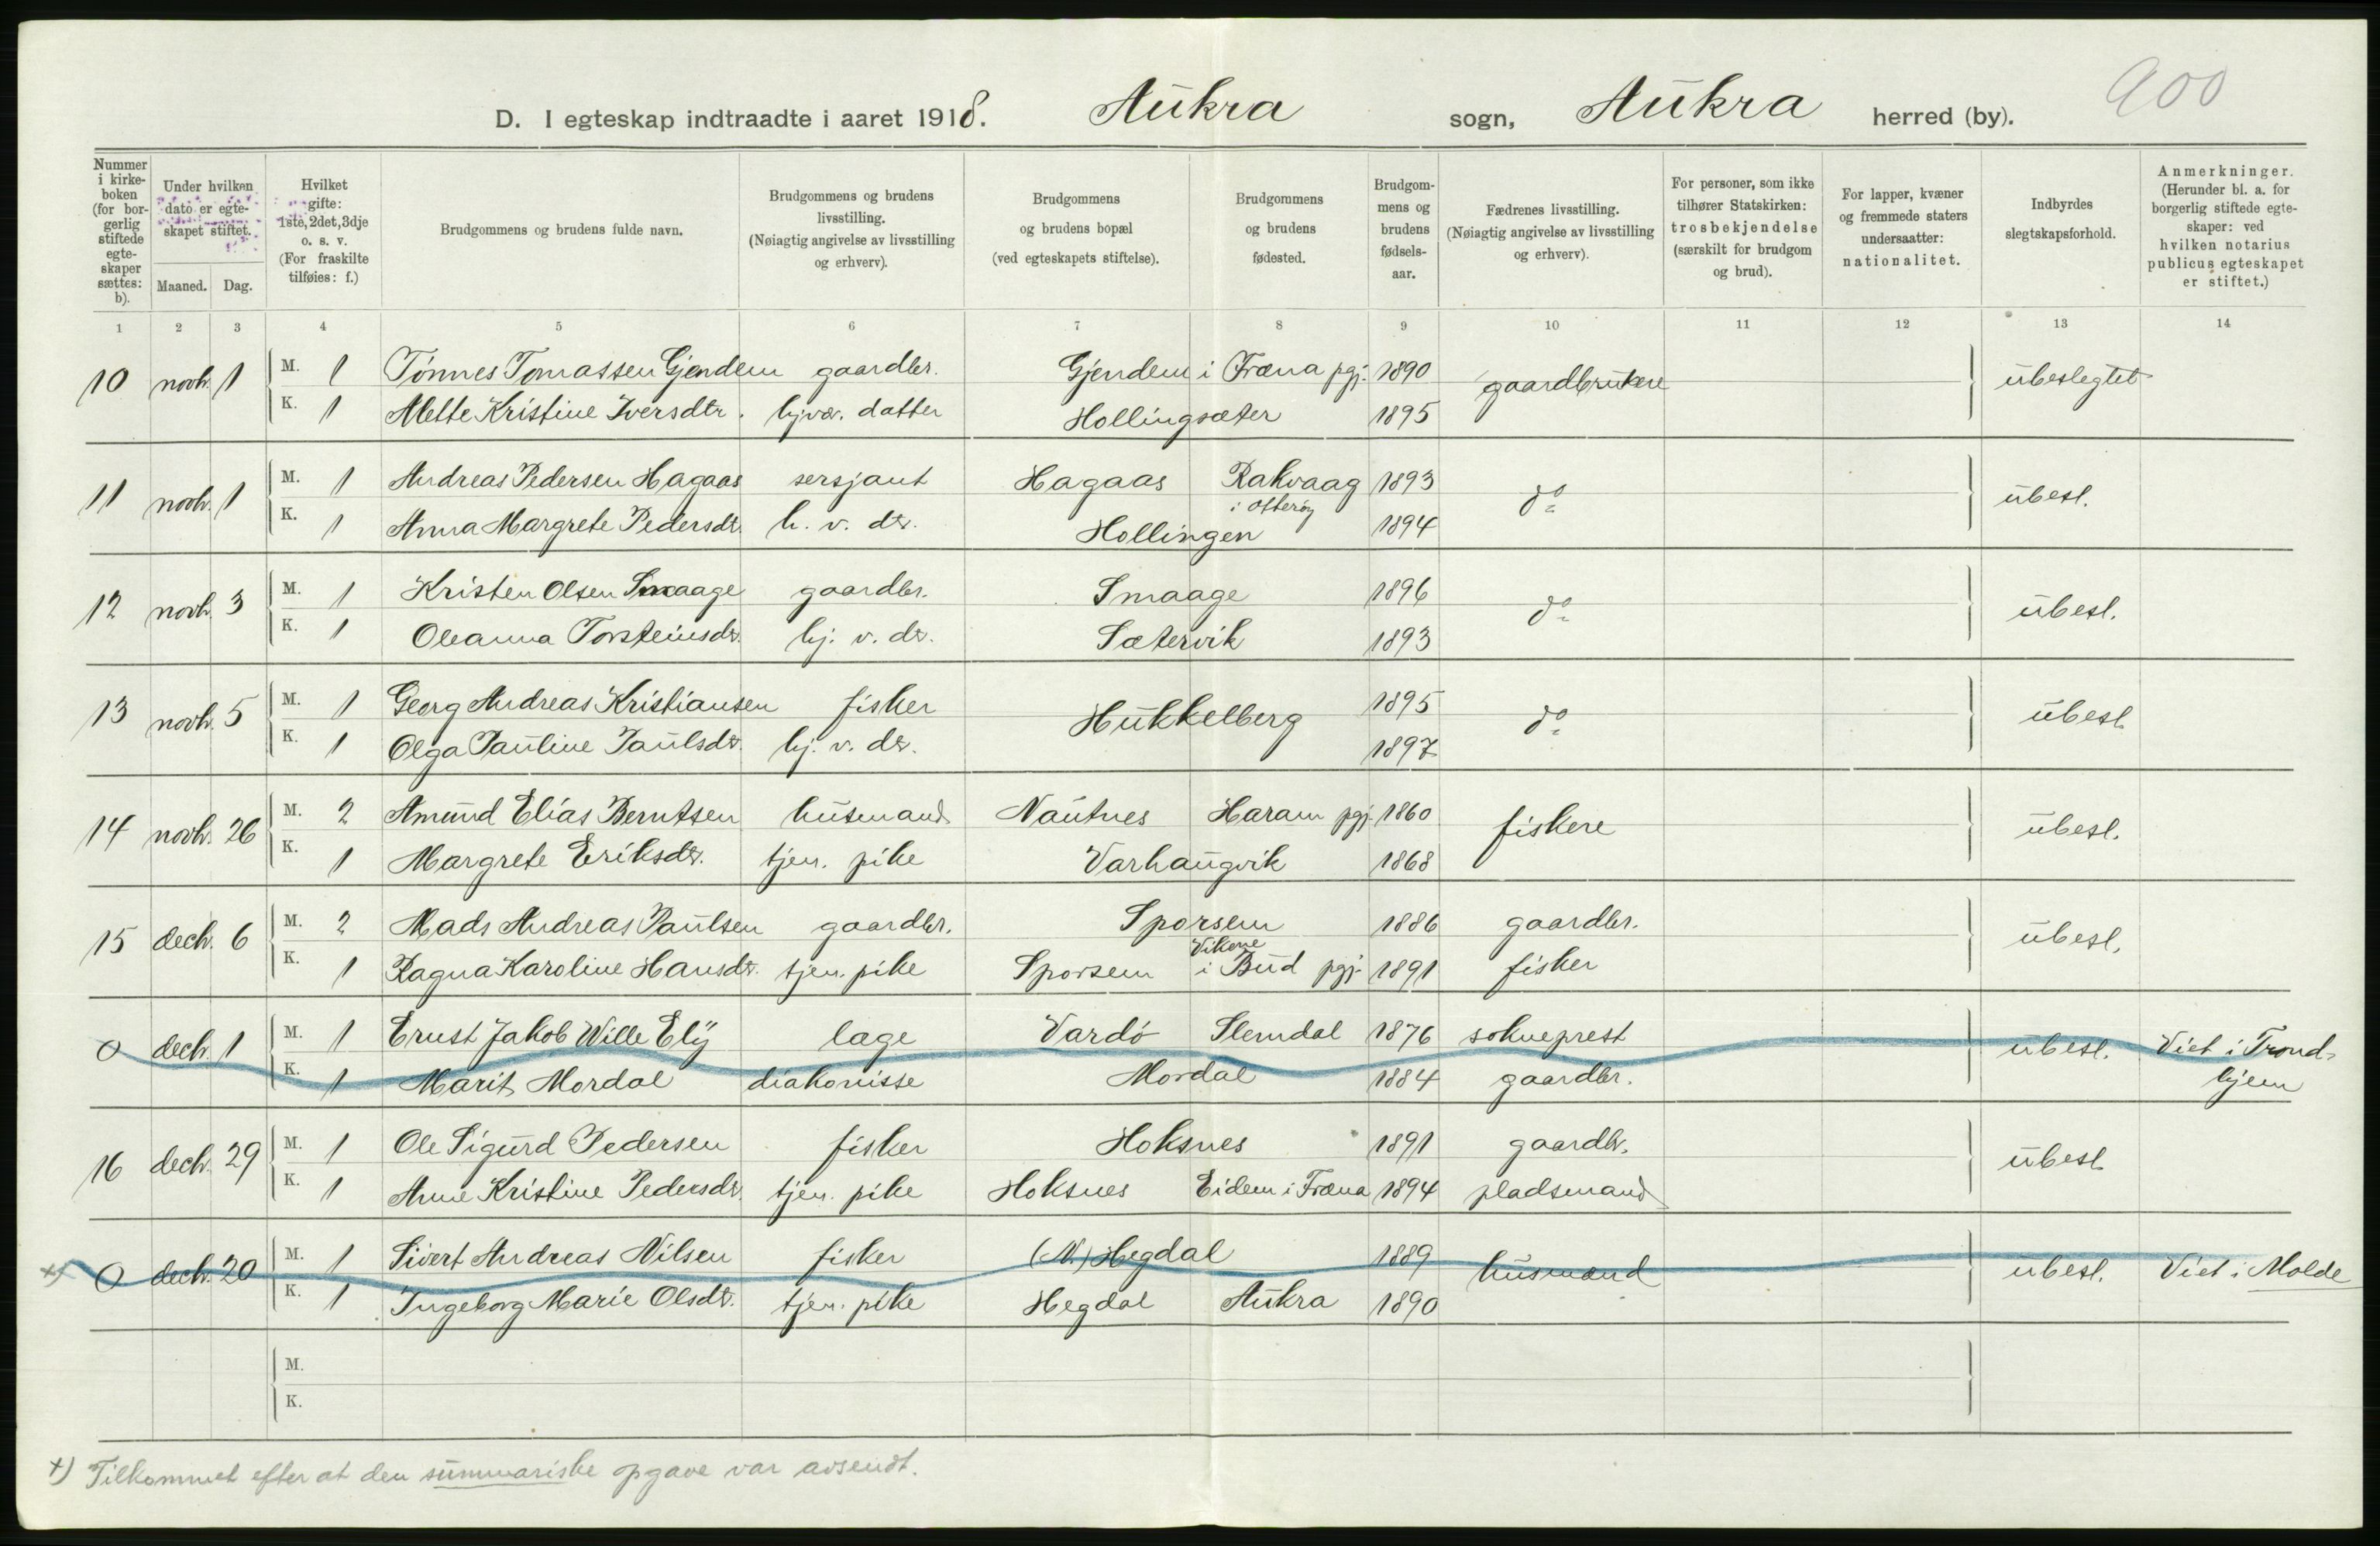 900
D. I egteskap indtraadte i aaret 1918. Aukra sogn, Aukra herred (by).
Nummer i kirke-boken (for bor-gerlig stiftede egte-skaper sættes: b).
Under hvilken dato er egte-skapet stiftet.
Maaned. Dag.
Hvilket gifte: 1ste, 2det, 3dje o. s. v. (For fraskilte tilføies: f.)
Brudgommens og brudens fulde navn.
Brudgommens og brudens livsstilling. (Nøiagtig angivelse av livsstilling og erhverv).
Brudgommens og brudens bopæl (ved egteskapets stiftelse).
Brudgommens og brudens fødested.
Brudgom-mens og brudens fødsels-aar.
Fædrenes livsstilling. (Nøiagtig angivelse av livsstilling og erhverv).
For personer, som ikke tilhører Statskirken: trosbekjendelse (særskilt for brudgom og brud).
For lapper, kvæner og fremmede staters undersaatter: nationalitet.
Indbyrdes slegtskapsforhold.
Anmerkninger. (Herunder bl. a. for borgerlig stiftede egte-skaper: ved hvilken notarius publicus egteskapet er stiftet.)
1 2 3 4 5 6 7 8 9 10 11 12 13 14
10 novb. 1 M. 1 Tønnes Tomassen Gjendem gaardbr. Gjendem i Fræna pgj. 1890 gaardbrukere ubeslegtet
K. 1 Mette Kristine Iversdtr. hjvæ. datter Hollingsæter 1895
11 novb. 1 M. 1 Andreas Pedersen Hagaas sersjant Hagaas Rakvaag i Otterøy 1893 do ubesl.
K. 1 Anna Margrete Pedersdt. h. v. dt. Hollingen 1894
12 novb. 3 M. 1 Kristen Olsen Smaage gaardbr. Smaage 1896 do ubesl.
K. 1 Oleanna Torsteinsdt. hj. v. dt. Sætervik 1893
13 novb. 5 M. 1 Georg Andreas Kristiansen fisker Hukkelberg 1895 do ubesl.
K. 1 Olga Pauline Paulsdt. hj. v. dt. 1897
14 novb. 26 M. 2 Amund Elias Berntsen husmand Nautnes Haram pgj. 1860 fiskere ubesl.
K. 1 Margrete Eriksdt. tjen. pike Varhaugvik 1868
15 decb. 6 M. 2 Mads Andreas Paulsen gaardbr. Sporsem 1886 gaardbr. ubesl.
K. 1 Ragna Karoline Hansdt. tjen. pike Sporsem Vikene i Bud pgj. 1891 fisker
0 decb. 1 M. 1 Ernst Jakob Wille Ely læge Vardø Slemdal 1876 sokneprest ubesl. Viet i Trond-
K. 1 Marit Mordal diakonisse Mordal 1884 gaardbr. hjem
16 decb. 29 M. 1 Ole Sigurd Pedersen fisker Hoksnes 1891 gaardbr. ubesl.
K. 1 Anne Kristine Pedersdt. tjen. pike Hoksnes Eidem i Fræna 1894 pladsmand
+) 0 decb. 20 M. 1 Sivert Andreas Nilsen fisker (N.) Hegdal 1889 husmænd ubesl. Viet i Molde
K. 1 Ingeborg Marie Olsdt. tjen. pike Hegdal Aukra 1890
M.
K.
+) Tilkommet efter at den summariske opgave var avsendt.